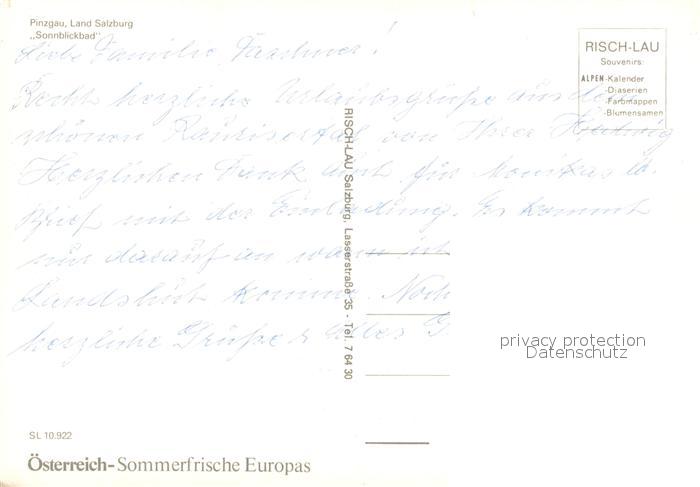 Pinzgau, Land Salzburg
„Sonnblickbad"
RISCH-LAU
Souvenirs:
ALPEN-Kalender
-Diaserien
-Farbmappen
-Blumensamen
Liebe Familie !
Recht herzliche Urlaubsgrüße aus dem
schönen Raurisertal von Ihrer Hedwig
Herzlichen Dank auch für Monikas lb.
Brief mit der Einladung. Es kommt
nur darauf an wann ich
Landshut komme. Noch
herzliche Grüße & alles G.
RISCH-LAU Salzburg, Lasserstraße 35 - Tel. 7 64 30
privacy protection
Datenschutz
SL 10.922
Österreich-Sommerfrische Europas